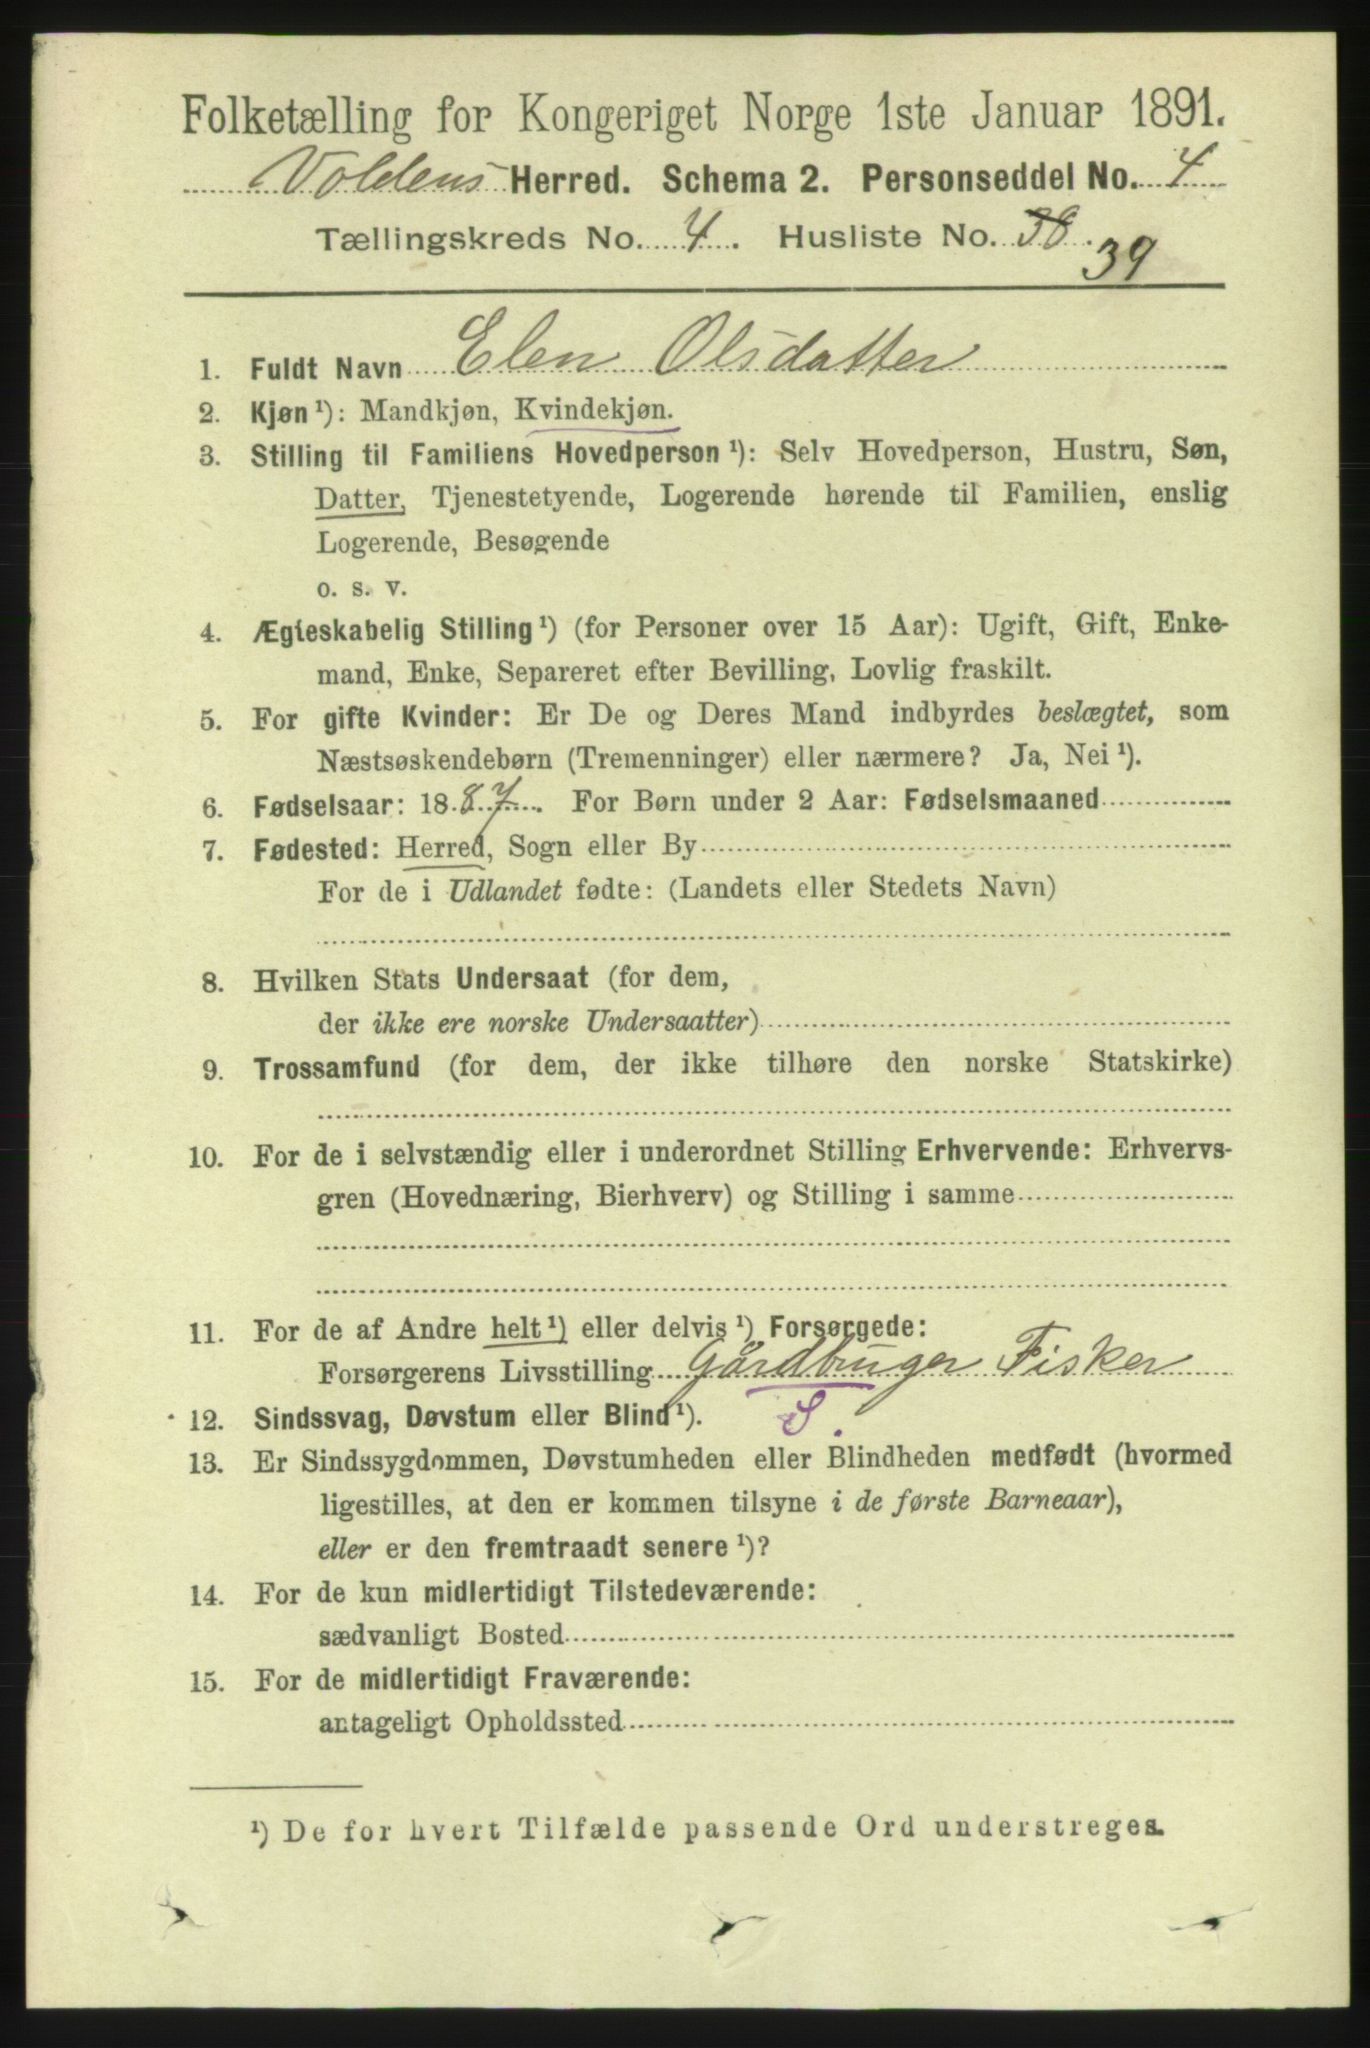 Folketælling for Kongeriget Norge 1ste Januar 1891.
Voldens Herred. Schema 2. Personseddel No. 4
Tællingskreds No. 4. Husliste No. 38.
39
1. Fuldt Navn Elen Olsdatter
2. Kjøn ¹): Mandkjøn, Kvindekjøn.
3. Stilling til Familiens Hovedperson ¹): Selv Hovedperson, Hustru, Søn,
Datter, Tjenestetyende, Logerende hørende til Familien, enslig
Logerende, Besøgende
o. s. v.
4. Ægteskabelig Stilling ¹) (for Personer over 15 Aar): Ugift, Gift, Enke-
mand, Enke, Separeret efter Bevilling, Lovlig fraskilt.
5. For gifte Kvinder: Er De og Deres Mand indbyrdes beslægtet, som
Næstsøskendebørn (Tremenninger) eller nærmere? Ja, Nei ¹).
6. Fødselsaar: 1887. For Børn under 2 Aar: Fødselsmaaned
7. Fødested: Herred, Sogn eller By
For de i Udlandet fødte: (Landets eller Stedets Navn)
8. Hvilken Stats Undersaat (for dem,
der ikke ere norske Undersaatter)
9. Trossamfund (for dem, der ikke tilhøre den norske Statskirke)
10. For de i selvstændig eller i underordnet Stilling Erhvervende: Erhvervs-
gren (Hovednæring, Bierhverv) og Stilling i samme
11. For de af Andre helt ¹) eller delvis ¹) Forsørgede:
Forsørgerens Livsstilling Gårdbruger Fisker
12. Sindssvag, Døvstum eller Blind ¹). S.
13. Er Sindssygdommen, Døvstumheden eller Blindheden medfødt (hvormed
ligestilles, at den er kommen tilsyne i de første Barneaar),
eller er den fremtraadt senere ¹)?
14. For de kun midlertidigt Tilstedeværende:
sædvanligt Bosted
15. For de midlertidigt Fraværende:
antageligt Opholdssted
¹) De for hvert Tilfælde passende Ord understreges.